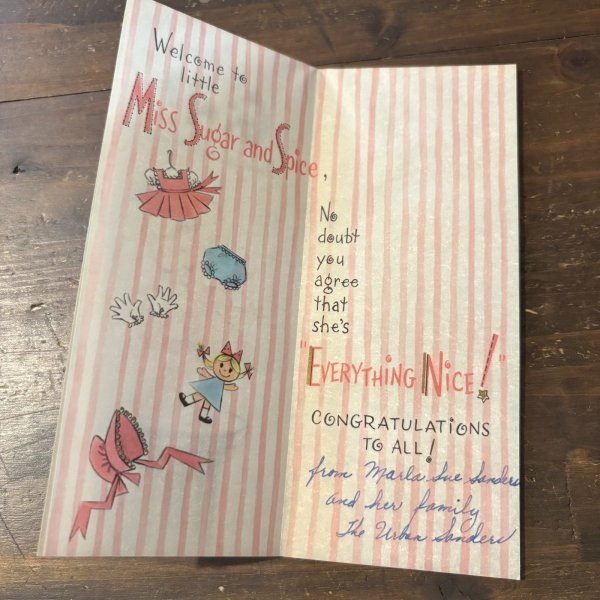 Welcome to
little
Miss Sugar and Spice,
No
doubt
you
agree
that
she's
"Everything Nice!"
CONGRATULATIONS
TO ALL!
from Marla Sue Sanders
and her family
The Urban Sanders